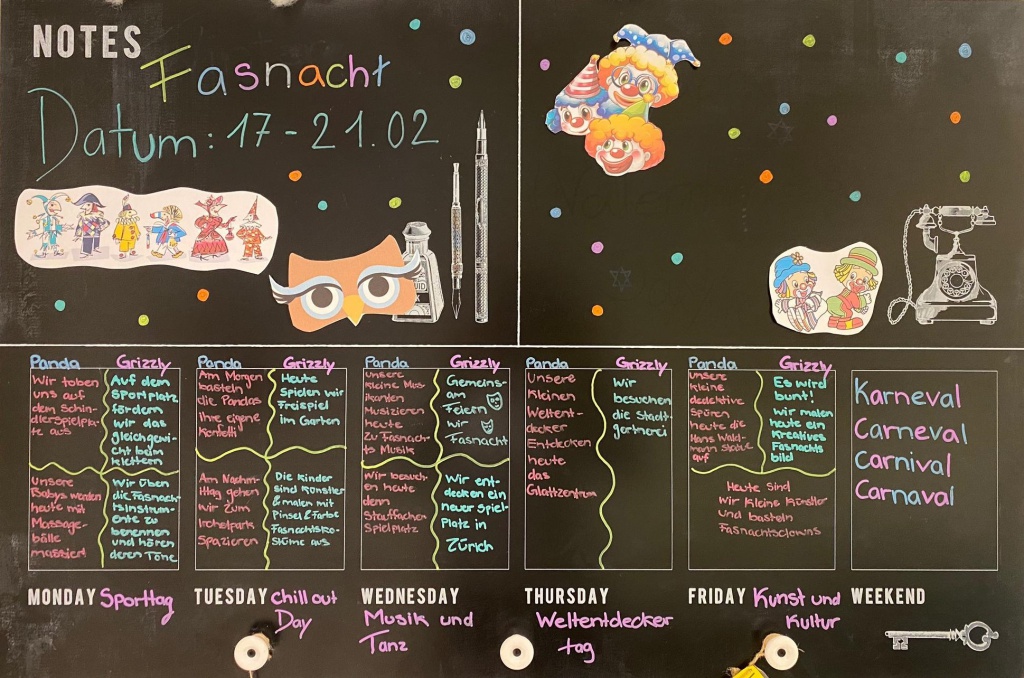 NOTES
Fasnacht
Datum: 17-21.02
Panda
Wir toben
uns auf
dem Schin-
dlerspielpla-
tz aus
Grizzly
Auf dem
Sportplatz
fördern
wir das
gleichgewi-
cht beim
klettern
Unsere
Babys werden
heute mit
Massage-
bälle
massiert
Wir üben
die Fasnach-
tsinstrum-
ente zu
benennen
und hören
deren Töne
MONDAY Sporttag
Panda
Am Morgen
basteln
die Pandas
Ihre eigene
Konfetti
Grizzly
Heute
Spielen wir
Freispiel
im Garten
Am Nachm-
ittag gehen
wir zum
Irchelpark
Spazieren
Die Kinder
sind Künstler
& malen mit
Pinsel & Farbe
Fasnachtsko-
stüme aus
TUESDAY Chill out
Day
Panda
unsere
kleine Mus-
ikanten
Musizieren
heute
Zu Fasnach-
ts Musik
Grizzly
Gemeins-
am
Feiern
wir
Fasnacht
Wir besuch-
en heute
denn
Stauffacher
Spielplatz
Wir ent-
decken ein
neuer Spiel-
Platz in
Zürich
WEDNESDAY
Musik und
Tanz
Panda
Unsere
Kleinen
Weltent-
decker
Entdecken
heute
das
Glattzentrum
Grizzly
Wir
besuchen
die Stadt-
gärtnerei
THURSDAY
Weltentdecker
tag
Panda
unsere
kleine
dedektive
Spüren
heute die
Hans Wald-
mann Statue
auf
Grizzly
Es wird
bunt!
wir malen
heute ein
Kreatives
Fasnachts
bild
Heute Sind
Wir Kleine Künstler
und basteln
Fasnachtsclowns
FRIDAY Kunst und
Kultur
Karneval
Carneval
Carnival
Carnaval
WEEKEND